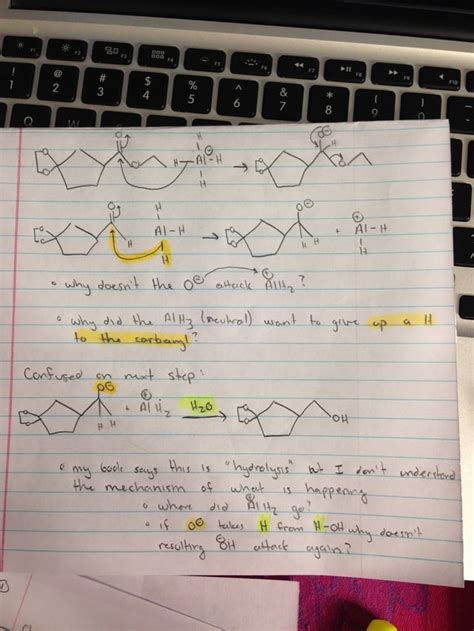 F1 F2 F3 F4 F5 F6 F7 F8 F9
! @ # $ % ^ & * (
1 2 3 4 5 6 7 8 9
O O O O H H-Al-H ⊖ H → O⊖ H O O O
O O O H H Al-H H → O O O⊖ H H + ⊕ Al-H H
• why doesn't the O⊖ attack ⊕AlH₂?
• why did the AlH₃ (neutral) want to give up a H
to the carbonyl?
Confused on next step:
O O O⊖ H H + ⊕AlH₂ H₂O → O O OH
• my book says this is "hydrolysis" but I don't understand
the mechanism of what is happening
• where did ⊕AlH₂ go?
• if O⊖ takes H from H-OH why doesn't
resulting ⊖OH attack again?